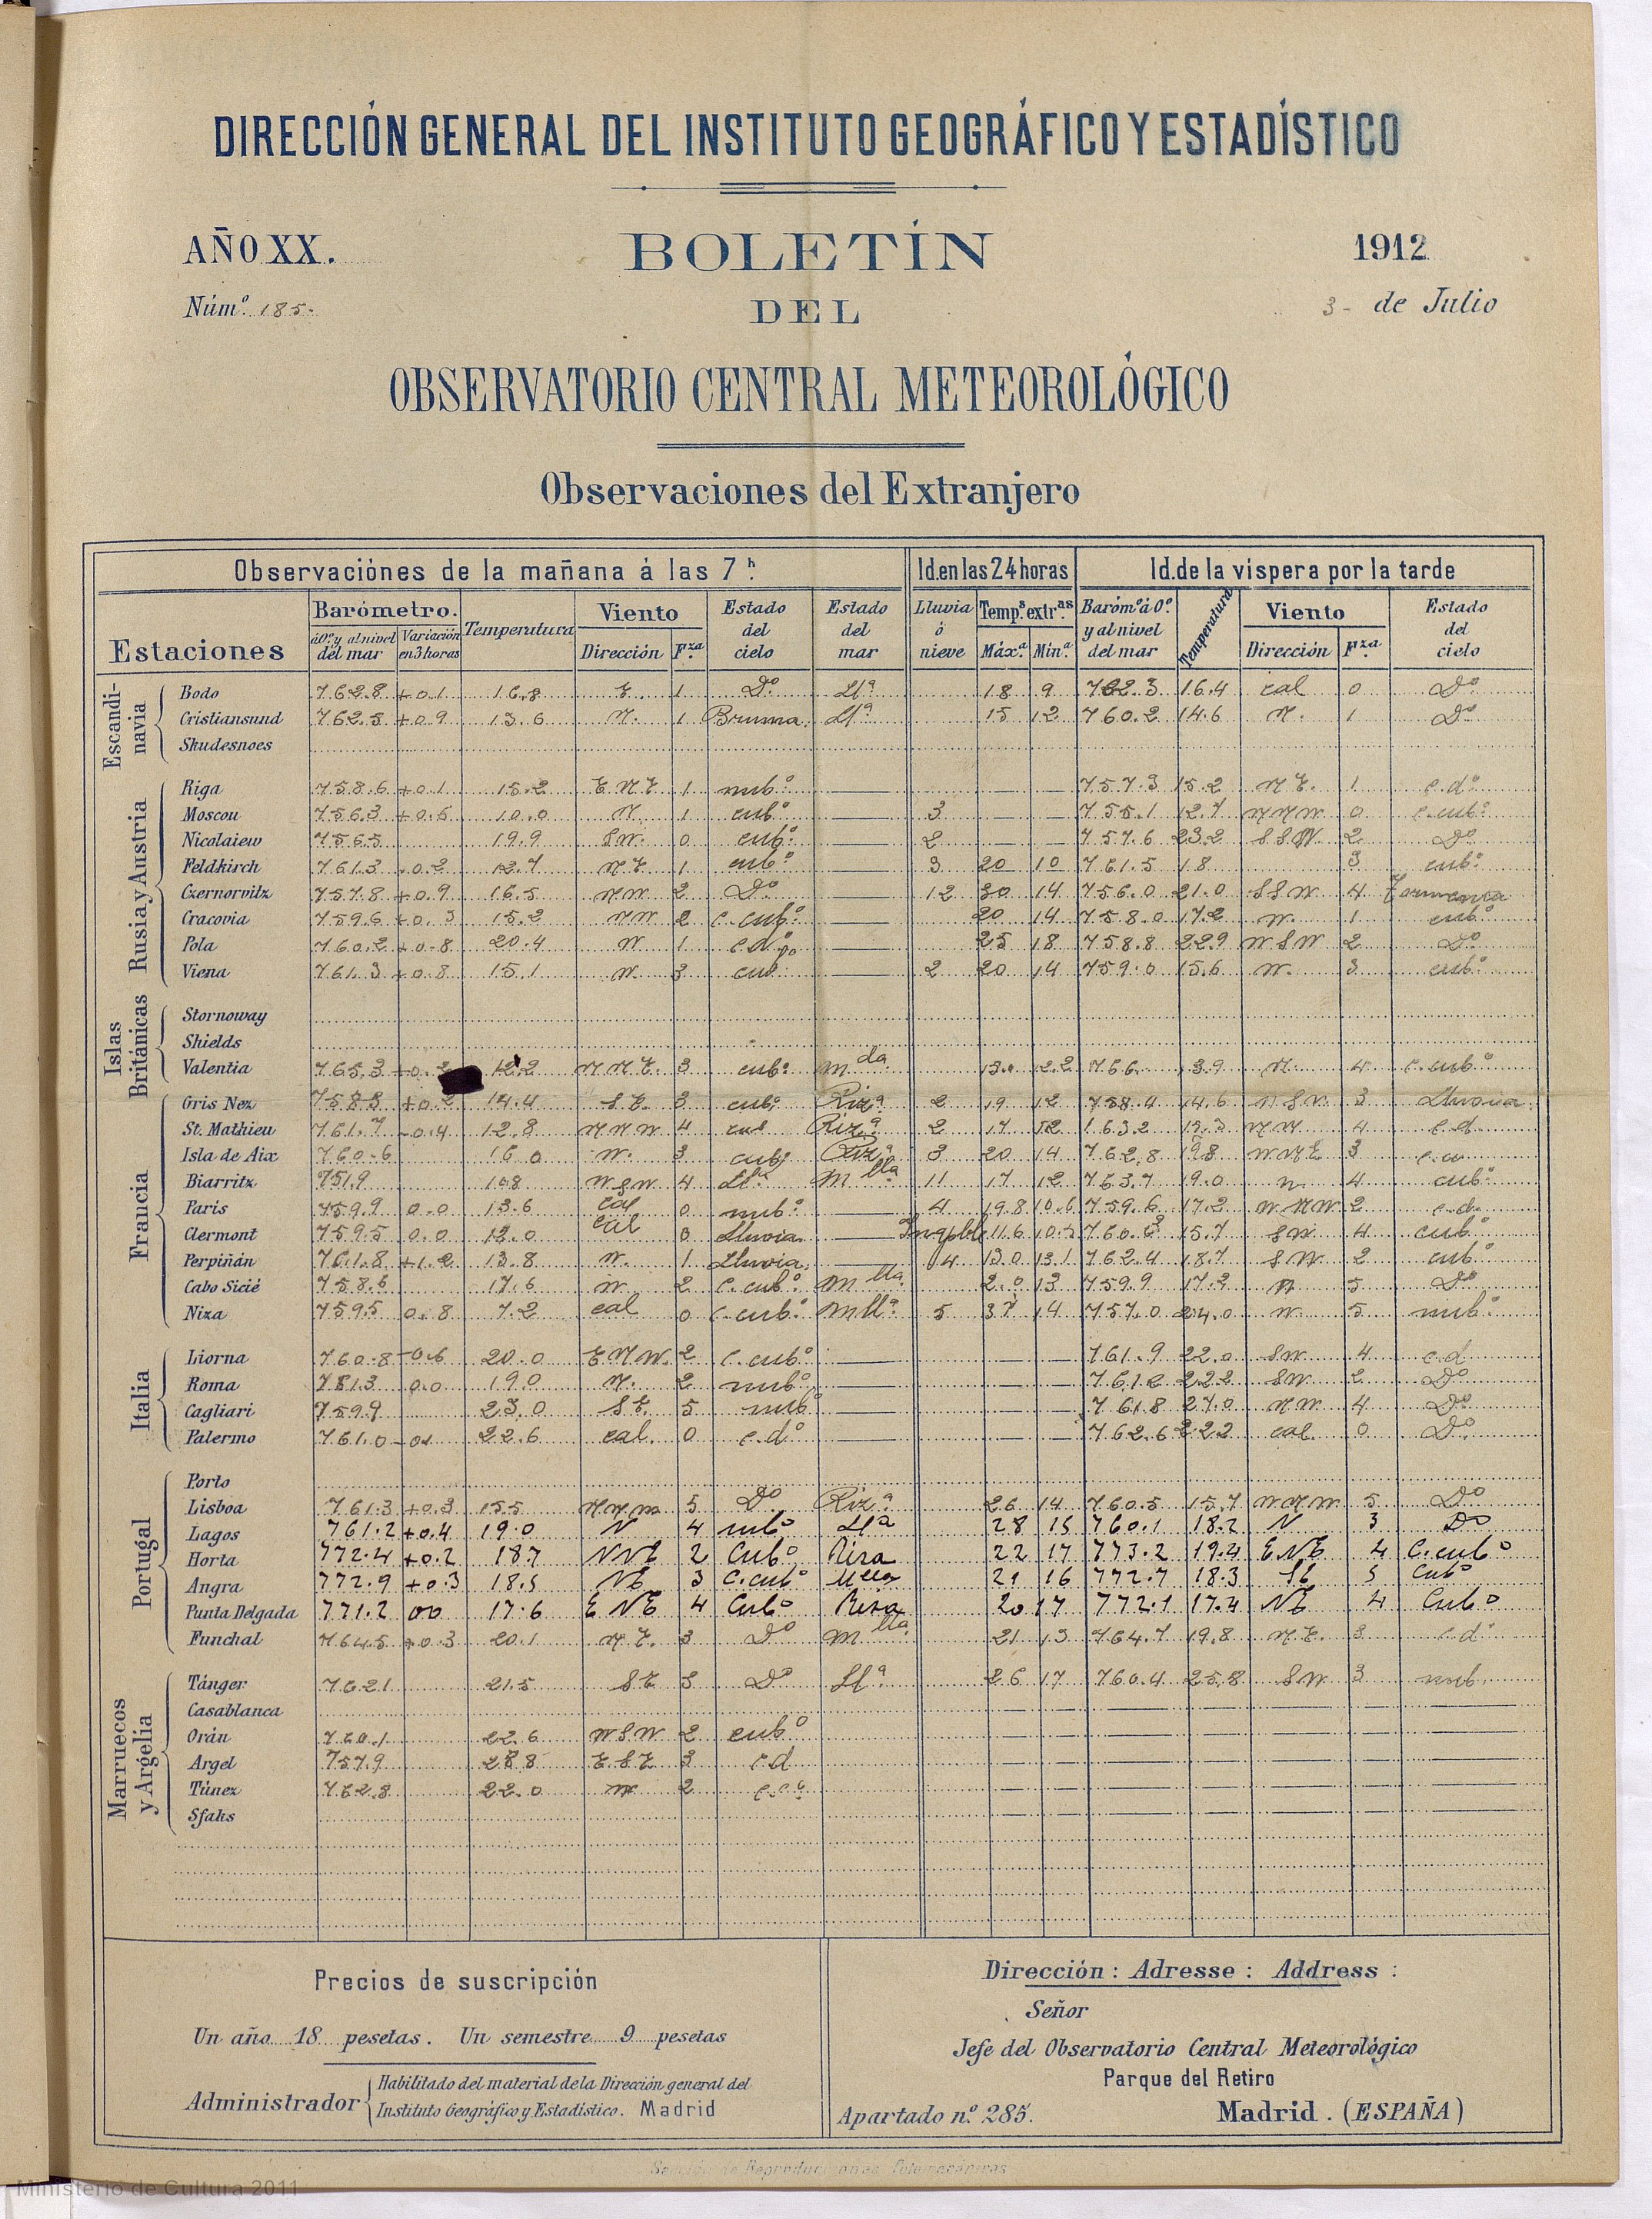 DIRECCIÓN GENERAL DEL INSTITUTO GEOGRÁFICO Y ESTADÍSTICO
AÑO XX. BOLETÍN 1912
Núm.º 185. DEL 3 - de Julio
OBSERVATORIO CENTRAL METEOROLÓGICO
Observaciones del Extranjero
Observaciónes de la mañana á las 7 h. Id. en las 24 horas Id. de la vispera por la tarde
Estaciones Barómetro. Temperatura Viento Estado del cielo Estado del mar Lluvia ó nieve Temp.s extr.as Baróm.º á 0.º y al nivel del mar Temperatura Viento Estado del cielo
á 0.º y al nivel del mar Variación en 3 horas Dirección F.za Máx.ª Mín.ª Dirección F.za
Escandinavia
Bodo 762.8 +0.1 16.8 E. 1 Dº Llª 18 9 762.3 16.4 cal 0 Dº
Cristiansund 762.5 +0.9 13.6 N. 1 Bruma Llª 15 12 760.2 14.6 N. 1 Dº
Skudesnoes
Rusia y Austria
Riga 758.6 +0.1 15.2 ENE 1 nubº 757.3 15.2 NE. 1 c.dº
Moscou 756.3 +0.6 10.0 N. 1 cubº 3 755.1 12.7 NNW 0 c.cubº
Nicolaiew 756.5 19.9 SW. 0 cubº 2 757.6 23.2 SSW 2 Dº
Feldkirch 761.3 +0.2 12.7 NE 1 cubº 3 20 10 761.5 18 3 cubº
Czernorvitz 757.8 +0.9 16.5 NW 2 Dº 12 30 14 756.0 21.0 SSW 4 Tormenta
Cracovia 759.6 +0.3 15.2 NW 2 c.cubº 20 14 758.0 17.2 W. 1 cubº
Pola 760.2 +0.8 20.4 W 1 c.dº 25 18 758.8 22.9 WSW 2 Dº
Viena 761.3 +0.8 15.1 W. 3 cubº 2 20 14 759.0 15.6 W. 3 cubº
Islas Británicas
Stornoway
Shields
Valentia 765.3 12.2 NNE. 3 cubº Mda 13.0 12.2 766 13.9 N. 4 c.cubº
Francia
Gris Nez 758.3 +0.2 14.4 SE. 3 cubº Rizª 2 19 12 758.4 14.6 WSW 3 Lluvia
St. Mathieu 761.7 -0.4 12.8 NNW 4 cub Rizª 2 17 12 NW 4 c.d
Isla de Aix 760.6 16.0 W. 3 cubº Rizª 3 20 14 762.8 198 WNE 3
Biarritz 751.9 168 WSW 4 Llª Mlla 11 17 12 763.7 19.0 n. 4 cubº
Paris 759.9 0.0 13.6 cal 0 nubº 4 19.8 10.6 759.6 17.2 WNW 2 c.d.
Clermont 759.5 0.0 12.0 cal 0 Lluvia Ingpble 11.6 15.7 SW. 4 cubº
Perpiñán 761.8 +1.2 13.8 W. 1 Lluvia 14 13.0 13.1 762.4 18.7 SW. 2 cubº
Cabo Sicié 758.6 17.6 W. 2 c.cubº Mlla 13 759.9 17.2 5 Dº
Niza 759.5 0.8 7.2 cal 0 c.cubº Mllª 5 37 14 757.0 24.0 W. 5 nubº
Italia
Liorna 760.8 -0.6 20.0 ENW. 2 c.cubº 761.9 22.0 SW 4 c.d
Roma 781.3 0.0 19.0 N. 2 nubº 761.2 22.2 SW 2 Dº
Cagliari 759.9 23.0 SE. 5 nub 761.8 27.0 NW. 4 Dº
Palermo 761.0 -01 22.6 cal. 0 c.dº 762.6 22.2 cal 0 Dº
Portugál
Porto
Lisboa 761.3 +0.3 15.5 NNW 5 Dº Rizª 26 14 760.5 15.7 WNW 5 Dº
Lagos 761.2 +0.4 19.0 N 4 nubº Llª 28 15 760.1 18.2 N 3 Dº
Horta 772.4 +0.2 18.7 NNE 2 Cubº Riza 22 17 773.2 19.4 ENE 4 C.cubº
Angra 772.9 +0.3 18.5 NE 3 C.cubº Mlla 21 16 772.7 18.3 SE 5 Cubº
Punta Delgada 771.2 00 17.6 ENE 4 Cubº Riza 20 17 772.1 17.4 NE 4 Cubº
Funchal 764.5 +0.3 20.1 NE. 3 Dº Mlla 21 13 764.7 19.8 NE. 3 c.dº
Marruecos y Argelia
Tánger 762.1 21.5 SE 3 Dº Llª 26 17 760.4 25.8 SW 3 nub.
Casablanca
Orán 760.1 22.6 WSW 2 cubº
Argel 757.9 28.8 ESE 3 c.d
Túnez 762.8 22.0 2
Sfaks
Precios de suscripción
Un año 18 pesetas. Un semestre 9 pesetas
Administrador Habilitado del material de la Dirección general del Instituto Geográfico y Estadistico. Madrid
Dirección : Adresse : Address :
Señor
Jefe del Observatorio Central Meteorológico
Parque del Retiro
Apartado n.º 285. Madrid. (ESPAÑA)
Ministerio de Cultura 2011